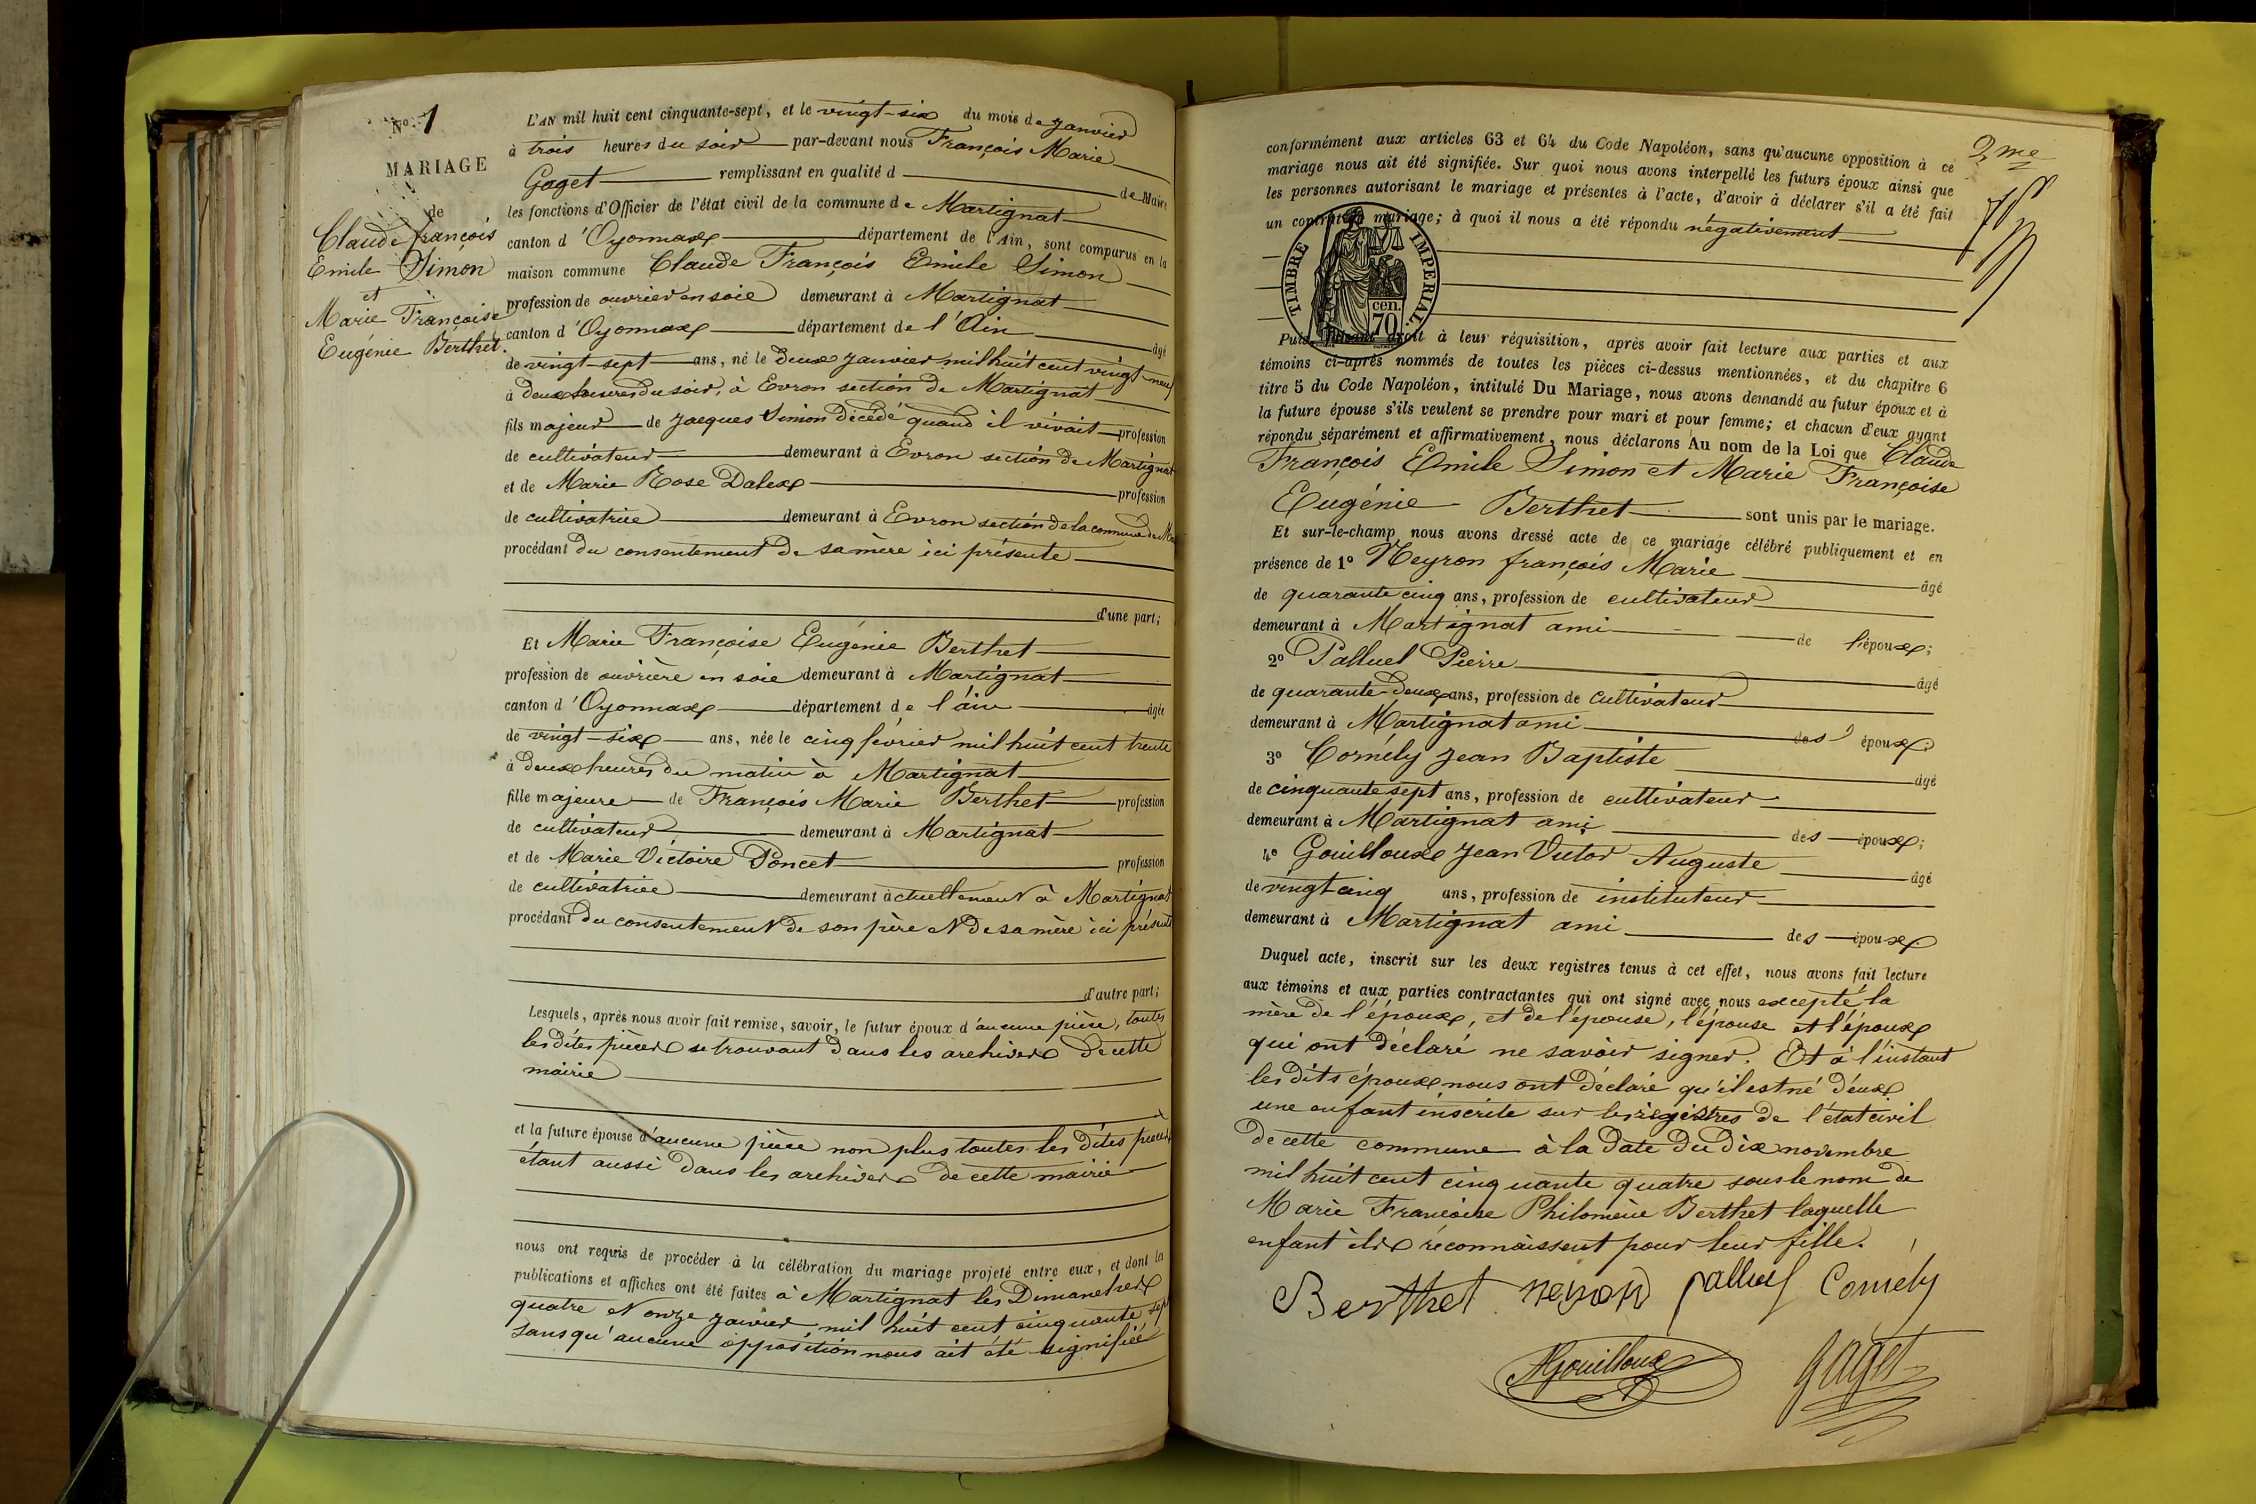 No 1
MARIAGE
de
Claude françois
Emile Simon
et
Marie Françoise
Eugénie Berthet.
L'AN mil huit cent cinquante-sept, et le vingt-six du mois de janvier
à trois heures du soir par-devant nous François Marie
Gaget remplissant en qualité d de Maire
les fonctions d'Officier de l'état civil de la commune de Martignat
canton d'Oyonnax département de l'Ain, sont comparus en la
maison commune Claude François Emile Simon
profession de ouvrier en soie demeurant à Martignat
canton d'Oyonnax département de l'Ain âgé
de vingt-sept ans, né le deux janvier mil huit cent vingt-neuf
à deux heures du soir, à Evron section de Martignat
fils majeur de jacques Simon décédé quand il vivait profession
de cultivateur demeurant à Evron section de Martignat
et de Marie Rose Dalex profession
de cultivatrice demeurant à Evron section de la commune de Mar
procédant du consentement de sa mère ici présente
d'une part;
Et Marie Françoise Eugénie Berthet
profession de ouvrière en soie demeurant à Martignat
canton d'Oyonnax département de l'ain âgée
de vingt-six ans, née le cinq février mil huit cent trente
à deux heures du matin à Martignat
fille majeure de François Marie Berthet profession
de cultivateur demeurant à Martignat
et de Marie Victoire Poncet profession
de cultivatrice demeurant actuellement à Martignat
procédant du consentement de son père et de sa mère ici présents
d'autre part;
Lesquels, après nous avoir fait remise, savoir, le futur époux d'aucune pièce, toutes
les dites pièces se trouvant dans les archives de cette
mairie
et la future épouse d'aucune pièce non plus toutes les dites pièces
étant aussi dans les archives de cette mairie
nous ont requis de procéder à la célébration du mariage projeté entre eux, et dont la
publications et affiches ont été faites à Martignat les Dimanches
quatre et onze janvier mil huit cent cinquante sept
sans qu'aucune opposition nous ait été signifiée
2me
conformément aux articles 63 et 64 du Code Napoléon, sans qu'aucune opposition à ce
mariage nous ait été signifiée. Sur quoi nous avons interpellé les futurs époux ainsi que
les personnes autorisant le mariage et présentes à l'acte, d'avoir à déclarer s'il a été fait
un contrat de mariage; à quoi il nous a été répondu négativement
TIMBRE IMPERIAL.
cen.
70
Puis faisant droit à leur réquisition, après avoir fait lecture aux parties et aux
témoins ci-après nommés de toutes les pièces ci-dessus mentionnées, et du chapitre 6
titre 5 du Code Napoléon, intitulé Du Mariage, nous avons demandé au futur époux et à
la future épouse s'ils veulent se prendre pour mari et pour femme; et chacun d'eux ayant
répondu séparément et affirmativement, nous déclarons Au nom de la Loi que Claude
François Emile Simon et Marie Françoise
Eugénie Berthet sont unis par le mariage.
Et sur-le-champ nous avons dressé acte de ce mariage célébré publiquement et en
présence de 1o Neyron françois Marie âgé
de quarante cinq ans, profession de cultivateur
demeurant à Martignat ami de l'époux;
2o Palluel Pierre âgé
de quarante-deux ans, profession de cultivateur
demeurant à Martignat ami des époux;
3o Comély jean Baptiste âgé
de cinquante sept ans, profession de cultivateur
demeurant à Martignat ami des époux;
4o Gouilloux jean Victor Auguste âgé
de vingt cinq ans, profession de instituteur
demeurant à Martignat ami des époux
Duquel acte, inscrit sur les deux registres tenus à cet effet, nous avons fait lecture
aux témoins et aux parties contractantes qui ont signé avec nous excepté la
mère de l'époux, et de l'épouse, l'épouse et l'époux
qui ont déclaré ne savoir signer. Et à l'instant
les dits époux nous ont déclaré qu'il est né d'eux
une enfant inscrite sur les registres de l'état civil
de cette commune à la date du dix novembre
mil huit cent cinquante quatre sous le nom de
Marie Françoise Philomène Berthet laquelle
enfant ils reconnaissent pour leur fille.
Berthet neyron palluel Comély
AGouilloux Gaget